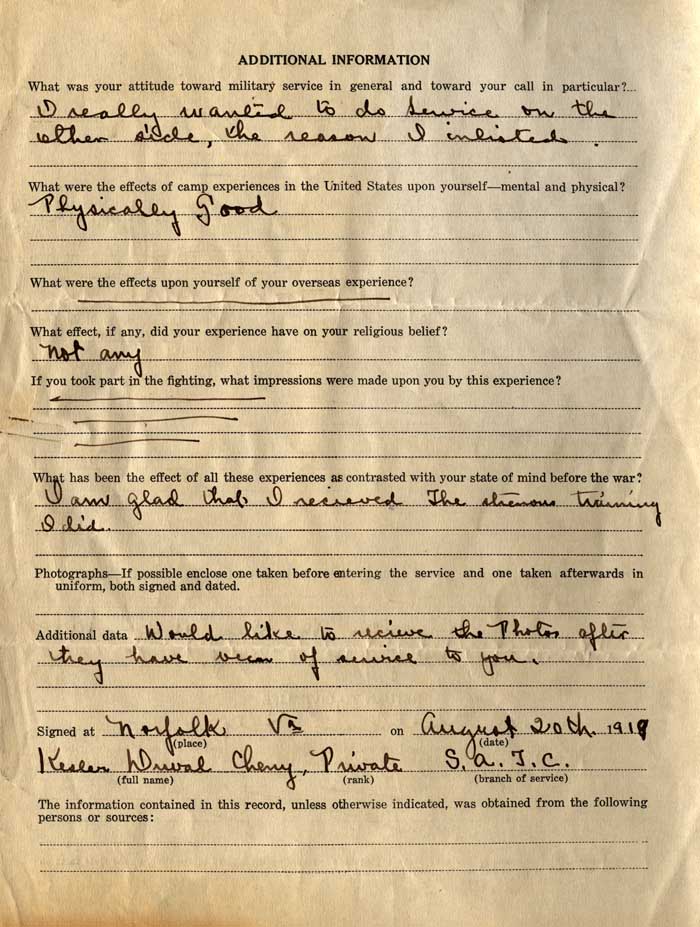 ADDITIONAL INFORMATION
What was your attitude toward military service in general and toward your call in particular?...
I really wanted to do service on the
other side, the reason I inlisted.
What were the effects of camp experiences in the United States upon yourself—mental and physical?
Physically Good
What were the effects upon yourself of your overseas experience?
What effect, if any, did your experience have on your religious belief?
not any
If you took part in the fighting, what impressions were made upon you by this experience?
What has been the effect of all these experiences as contrasted with your state of mind before the war?
I am glad that I recieved the strenous training
I did.
Photographs—If possible enclose one taken before entering the service and one taken afterwards in
uniform, both signed and dated.
Additional data Would like to recieve the Photos after
they have been of service to you.
Signed at Norfolk Va on August 20th. 1919
(place) (date)
Duval Private S.A.T.C.
(full name) (rank) (branch of service)
The information contained in this record, unless otherwise indicated, was obtained from the following
persons or sources: